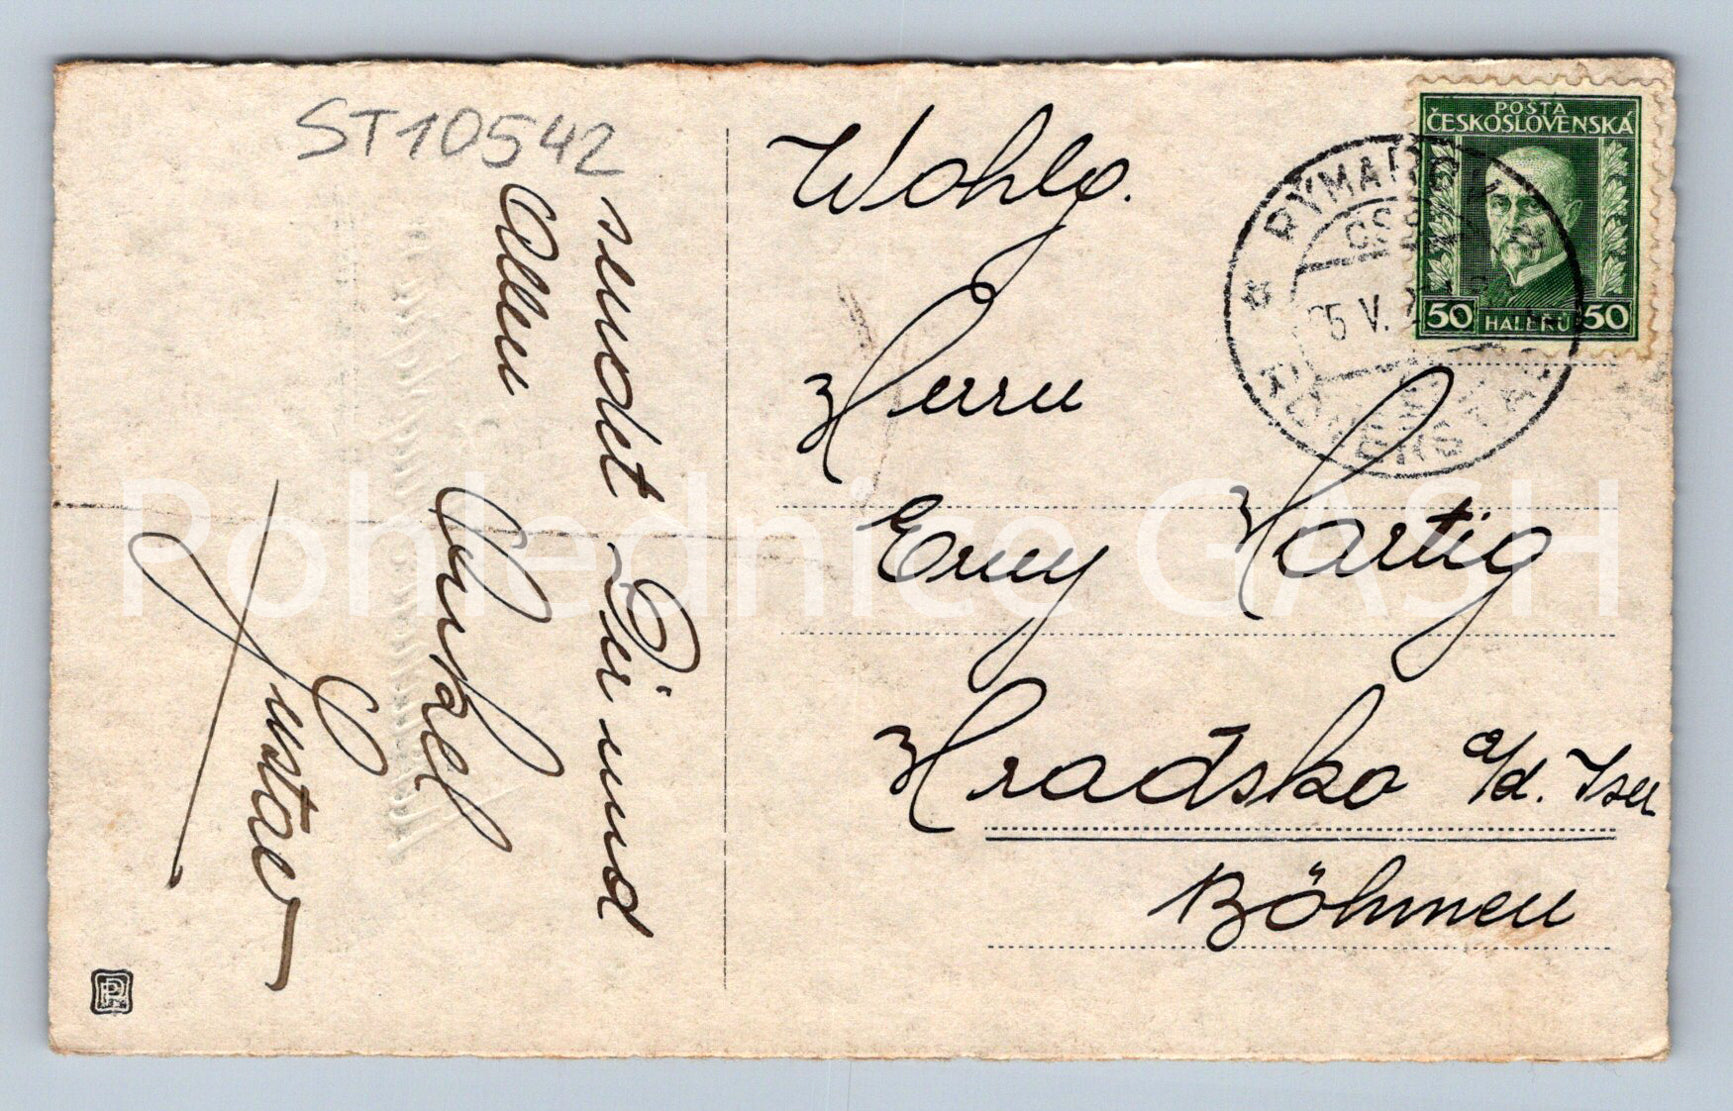 ST10542
sendet Dir und
Allen
Onkel
Gustav
Wohlg.
Herrn
Erny Hartig
Hradsko a/d. Iser
Böhmen
POŠTA
ČESKOSLOVENSKÁ
50 HALÉŘŮ 50
ČSR
5 V.
Pohlednice GASH